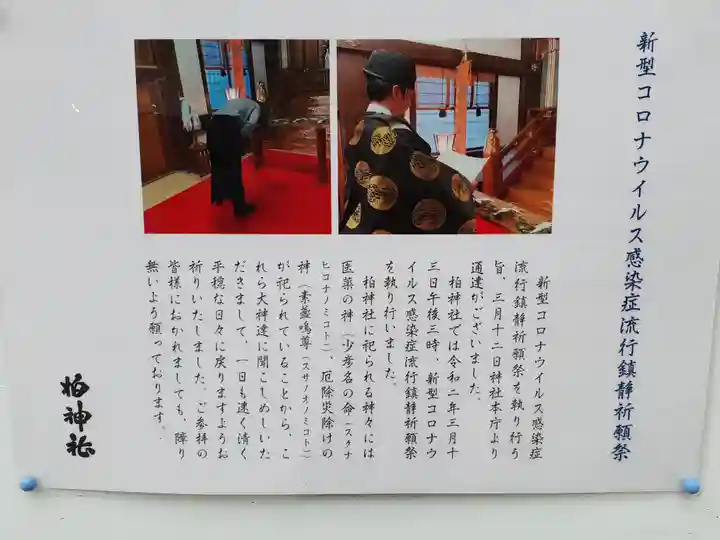 新型コロナウイルス感染症流行鎮静祈願祭
新型コロナウイルス感染症
流行鎮静祈願祭を執り行う
旨、三月十二日神社本庁より
通達がございました。
柏神社では令和二年三月十
三日午後三時、新型コロナウ
イルス感染症流行鎮静祈願祭
を執り行いました。
柏神社に祀られる神々には
医薬の神（少彦名の命（スクナ
ヒコナノミコト）、厄除災除けの
神（素盞嗚尊（スサノオノミコト）
が祀られていることから、こ
れら大神達に聞こしめしいた
だきまして、一日も速く清く
平穏な日々に戻りますようお
祈りいたしました。ご参拝の
皆様におかれましても、障り
無いよう願っております。
柏神社